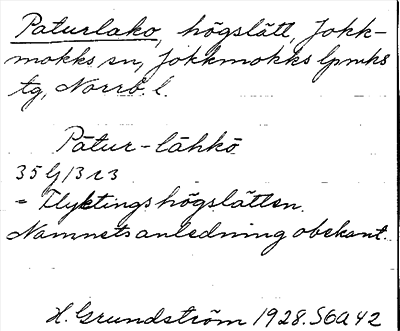 Paturlako, högslätt, Jokk-
mokks sn, Jokkmokks lpmks
tg, Norrb. l.
Pātur-lāhkō
35 G/3 r 3
= Flyktingshögslätten.
Namnets anledning obekant.
H. Grundström 1928. SGA 42